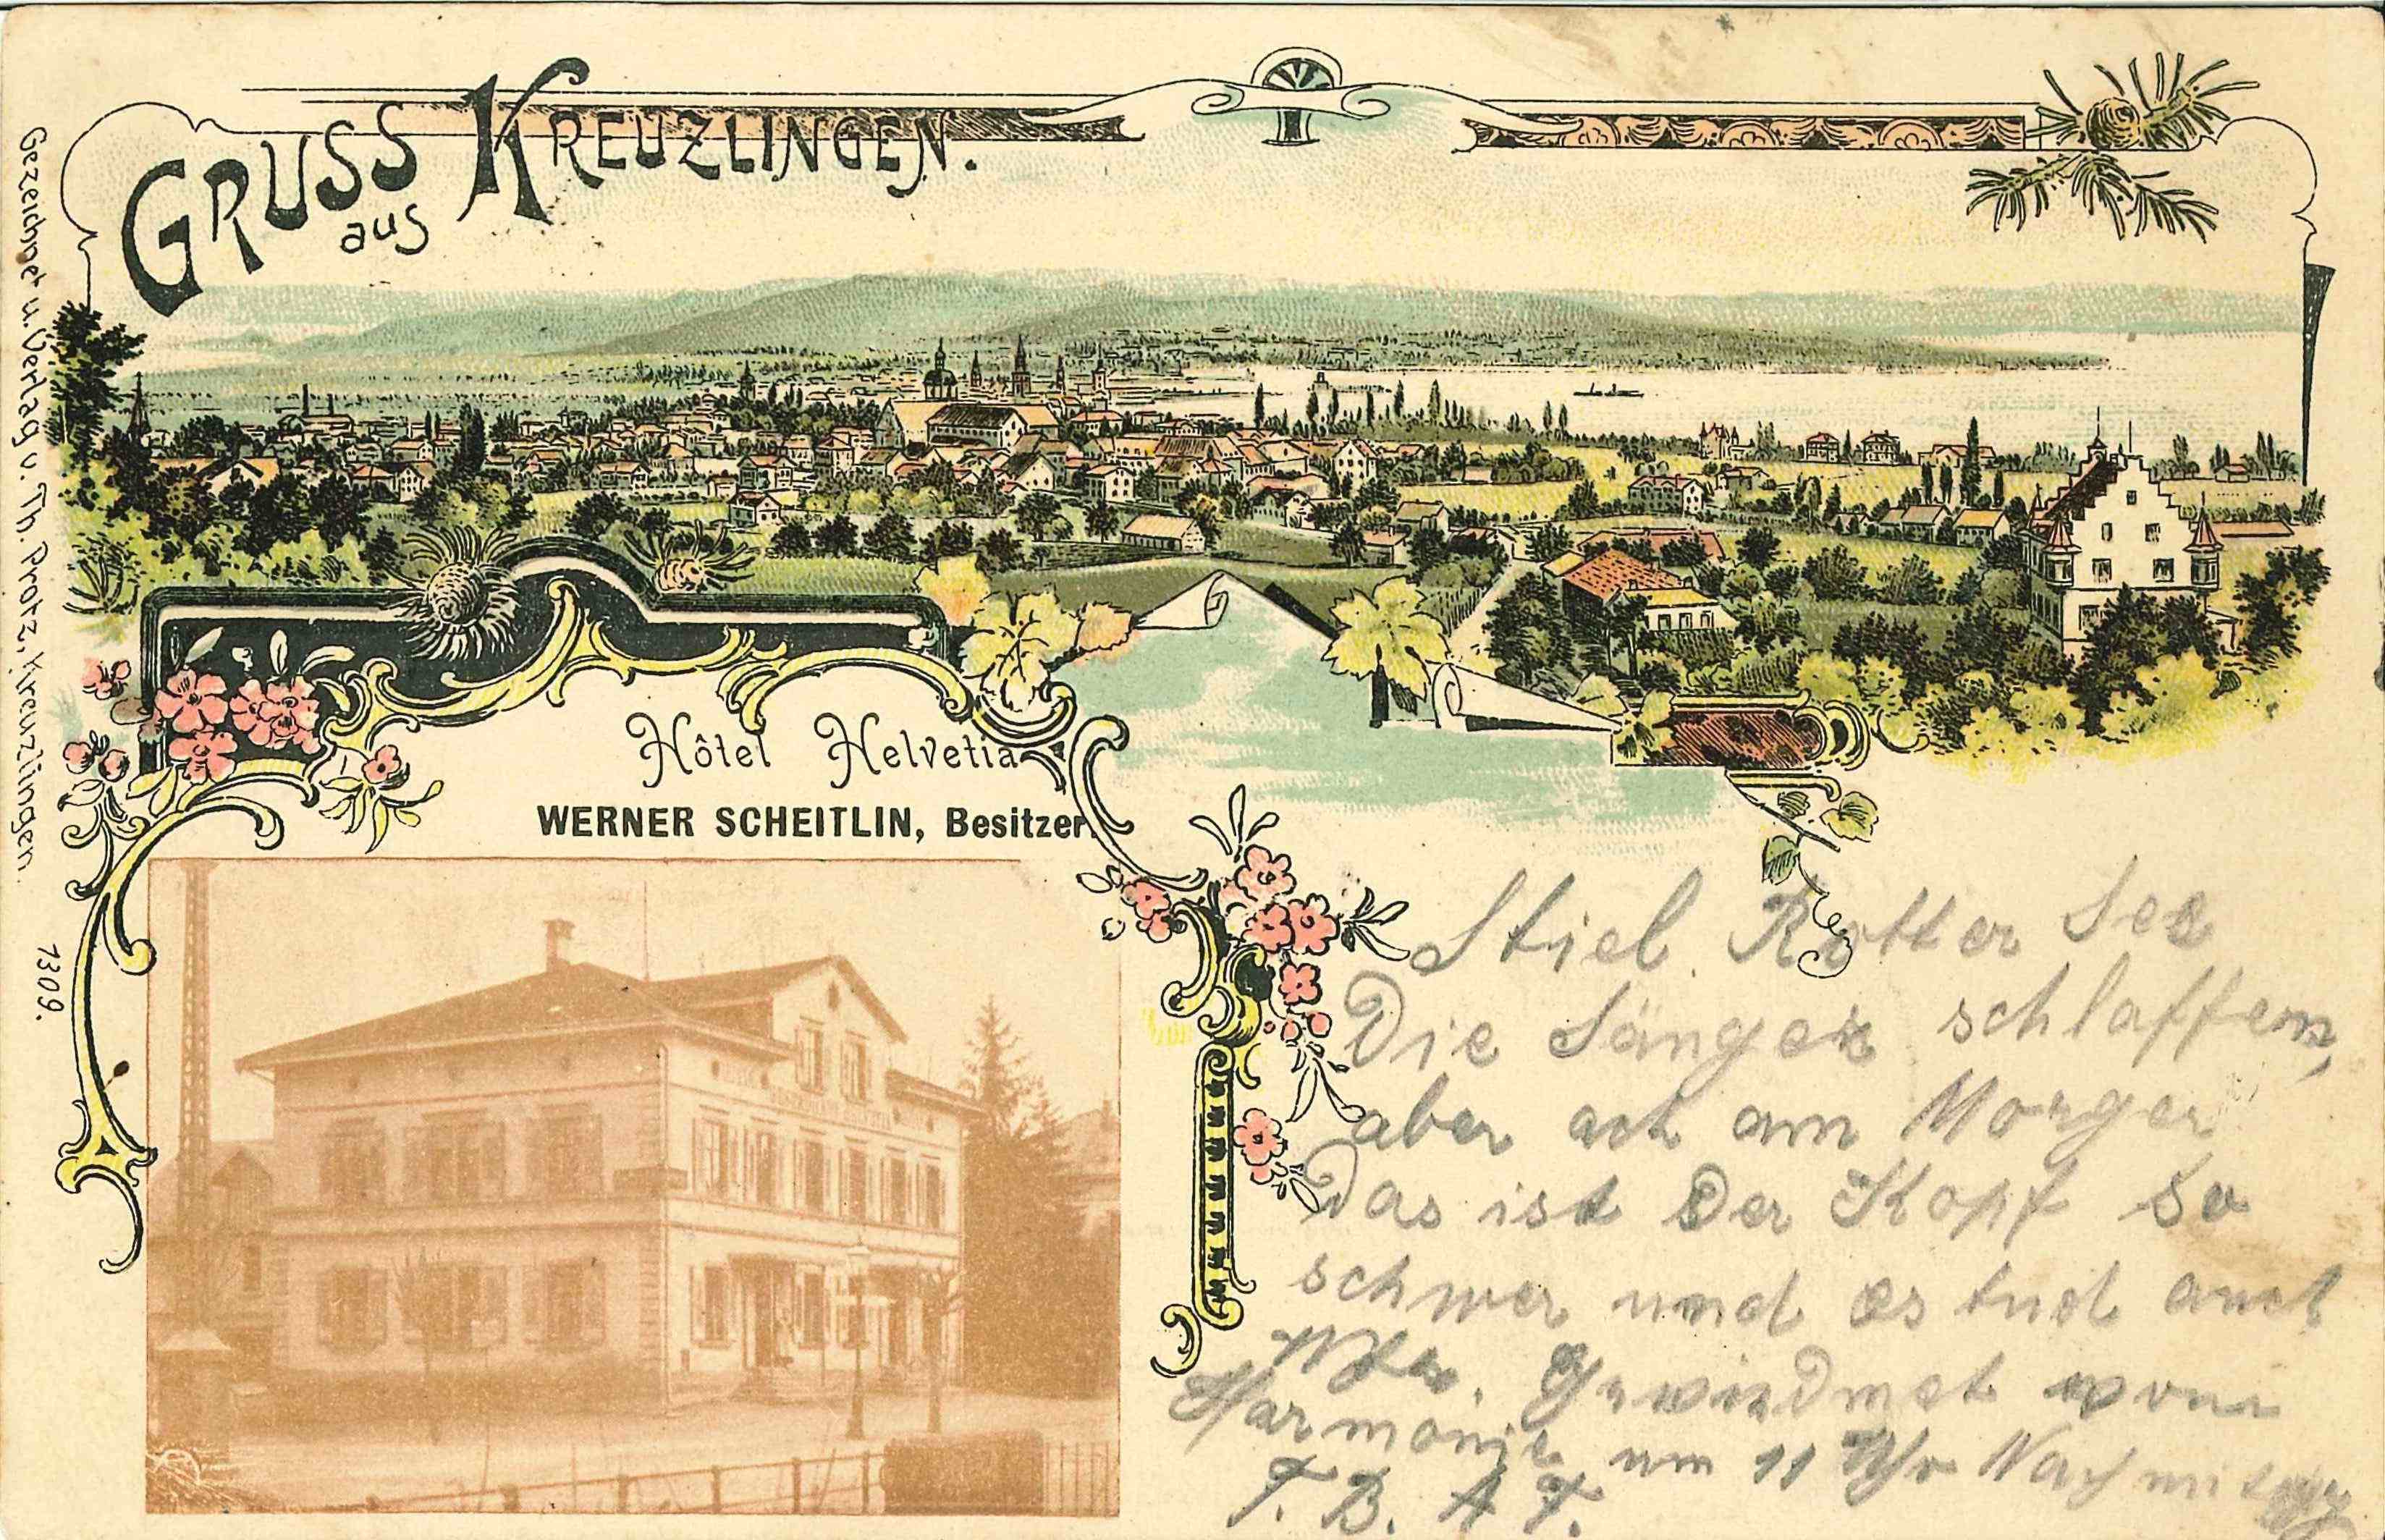 GRUSS aus KREUZLINGEN.
Hôtel Helvetia
WERNER SCHEITLIN, Besitzer.
Gezeichnet u. Verlag v. Th. Protz, Kreuzlingen.
1309.
Stiel Rotter See
Die Sänger schlaffen,
aber ach am Morgen
Das ist Der Kopf So
schwer und es tud auch
Weh. Gewidmet von
Harmonie um 11 Uhr Nachmittag
F. B. A F.